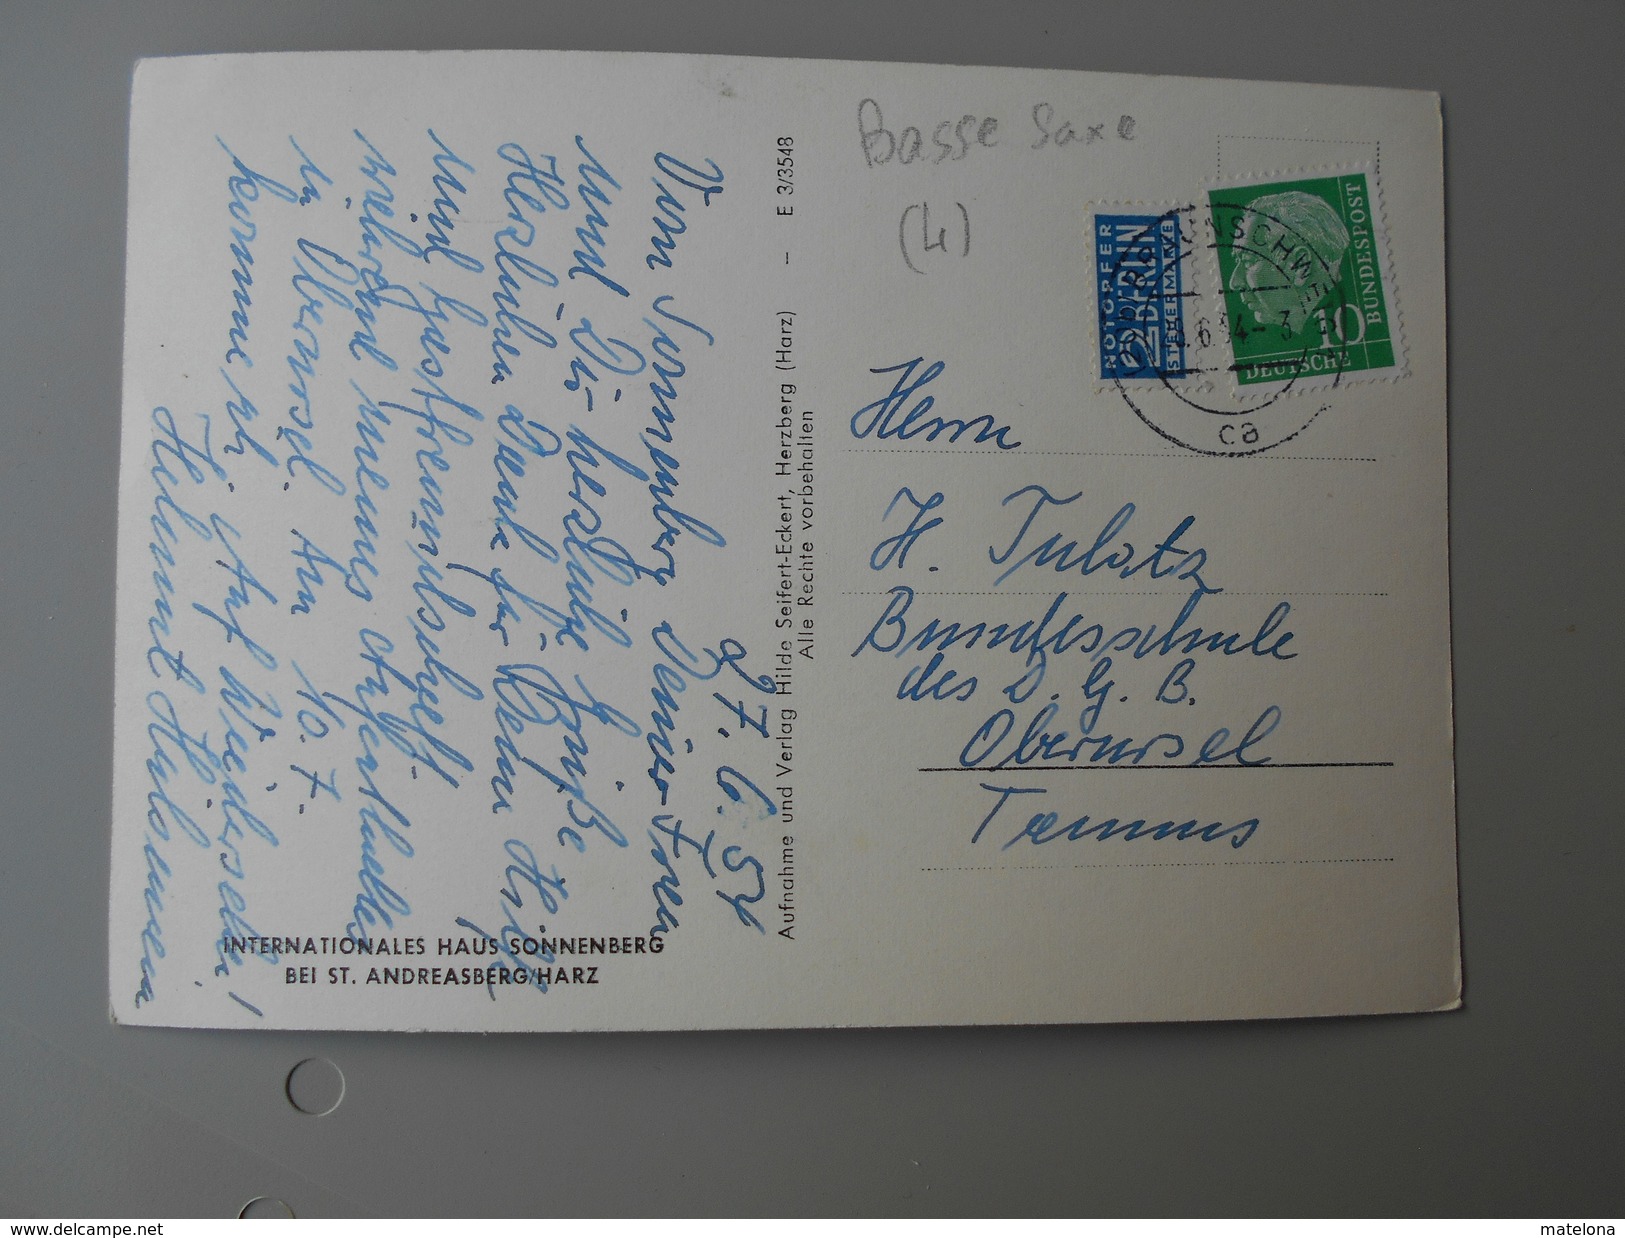 Basse Saxe
(4)
NOTOPFER
2 BERLIN
STEUERMARKE
BUNDESPOST
10
DEUTSCHE
BRAUNSCHWEIG
6.54-3
ca
Herrn
H. Tulatz
Bundesschule
des D. G. B.
Oberursel
Taunus
E 3/3548
Aufnahme und Verlag Hilde Seifert-Eckert, Herzberg (Harz) –
Alle Rechte vorbehalten
27. 6. 54
Von Sonnenberg
und Dir herzliche Grüße
Herzlichen Dank für Deine Hilfe
und Gastfreundschaft
während meines Aufenthaltes
in Oberursel. Am 10.7.
komme ich. Auf Wiedersehen!
Helmut
INTERNATIONALES HAUS SONNENBERG
BEI ST. ANDREASBERG/HARZ
www.delcampe.net
matelona